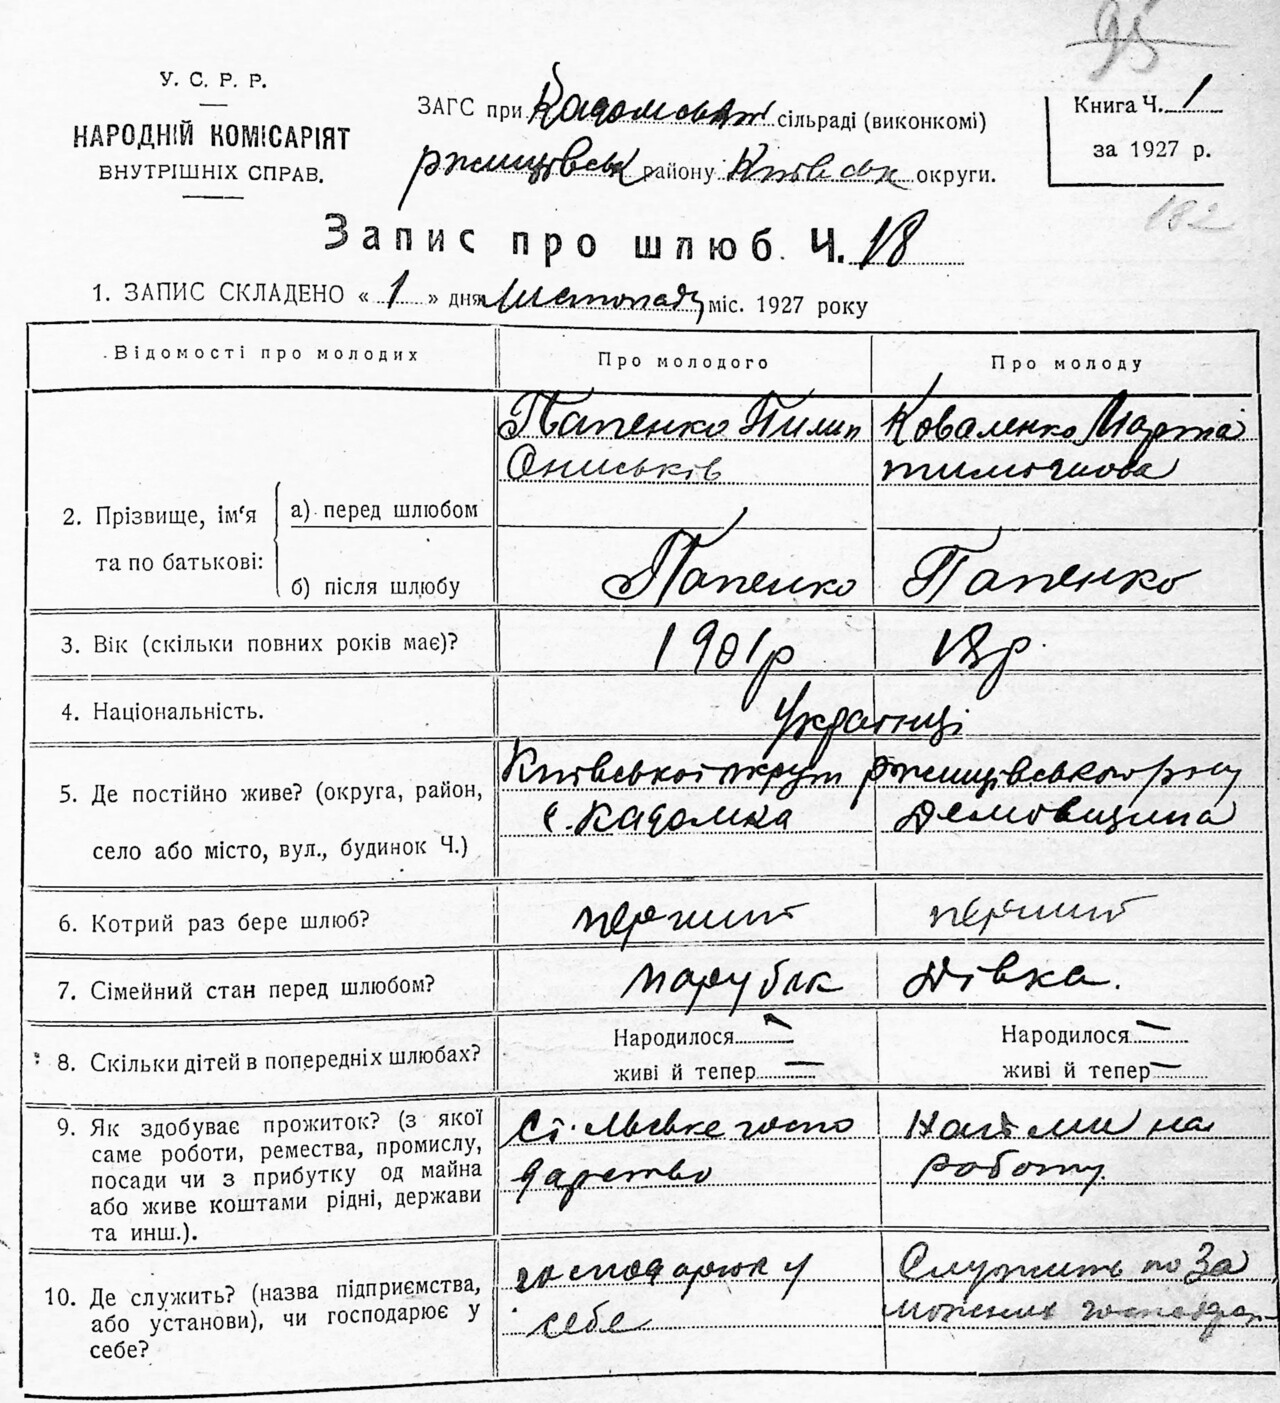 95
У. С. Р. Р.
НАРОДНІЙ КОМІСАРІЯТ
ВНУТРІШНІХ СПРАВ.
ЗАГС при Кадомській сільраді (виконкомі)
Ржищівськ району Київськ округи.
Книга Ч. 1
за 1927 р.
182
Запис про шлюб. Ч. 18
1. ЗАПИС СКЛАДЕНО « 1 » дня Листопаду міс. 1927 року
Відомості про молодих
Про молодого
Про молоду
2. Прізвище, ім'я та по батькові:
а) перед шлюбом
Папенко Пилип
Ониськів
Коваленко Марта
Тимошова
б) після шлюбу
Папенко
Папенко
3. Вік (скільки повних років має)?
1901р
18р.
4. Національність.
Українці
5. Де постійно живе? (округа, район,
село або місто, вул., будинок Ч.)
Київської округи Ржищівського р-ну
с. Кадомка
Демовщина
6. Котрий раз бере шлюб?
перший
перший
7. Сімейний стан перед шлюбом?
парубок
Дівка.
8. Скільки дітей в попередніх шлюбах?
Народилося —
живі й тепер —
Народилося —
живі й тепер —
9. Як здобуває прожиток? (з якої
саме роботи, ремества, промислу,
посади чи з прибутку од майна
або живе коштами рідні, держави
та инш.).
Сільське госпо
дарство
Найми на
роботу.
10. Де служить? (назва підприємства,
або установи), чи господарює у
себе?
господарює у
себе
Служить по За
можних господар-